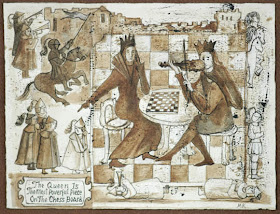 The Queen Is
The Most Powerful Piece
On The Chess Board